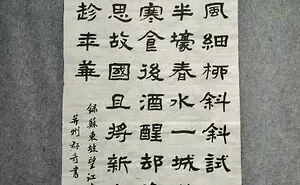 風細柳斜斜試
半壕春水一城
寒食後酒醒却
思故國且將新
趁年華
録蘇東坡望江
并州書